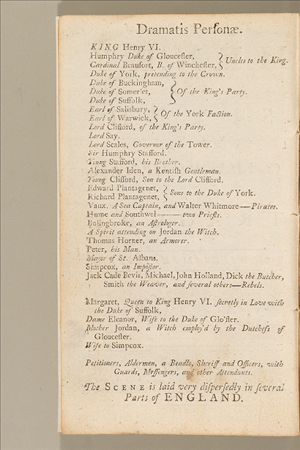 Dramatis Personæ.
KING Henry VI.
Humphry Duke of Gloucester, } Uncles to the King.
Cardinal Beaufort, B. of Winchester,
Duke of York, pretending to the Crown.
Duke of Buckingham,
Duke of Somerset, } Of the King's Party.
Duke of Suffolk,
Earl of Salisbury, } Of the York Faction.
Earl of Warwick,
Lord Clifford, of the King's Party.
Lord Say.
Lord Scales, Governor of the Tower.
Sir Humphry Stafford.
Young Stafford, his Brother.
Alexander Iden, a Kentish Gentleman.
Young Clifford, Son to the Lord Clifford.
Edward Plantagenet, } Sons to the Duke of York.
Richard Plantagenet,
Vaux, A Sea Captain, and Walter Whitmore—Pirates.
Hume and Southwel—two Priests.
Bolingbroke, an Astrologer.
A Spirit attending on Jordan the Witch.
Thomas Horner, an Armorer.
Peter, his Man.
Mayor of St. Albans.
Simpcox, an Impostor.
Jack Cade Bevis, Michael, John Holland, Dick the Butcher,
Smith the Weaver, and several others—Rebels.
Margaret, Queen to King Henry VI. secretly in Love with
the Duke of Suffolk,
Dame Eleanor, Wife to the Duke of Glo'ster.
Mother Jordan, a Witch employ'd by the Dutchess of
Gloucester.
Wife to Simpcox.
Petitioners, Aldermen, a Beadle, Sheriff and Officers, with
Guards, Messengers, and other Attendants.
The SCENE is laid very dispersedly in several
Parts of ENGLAND.